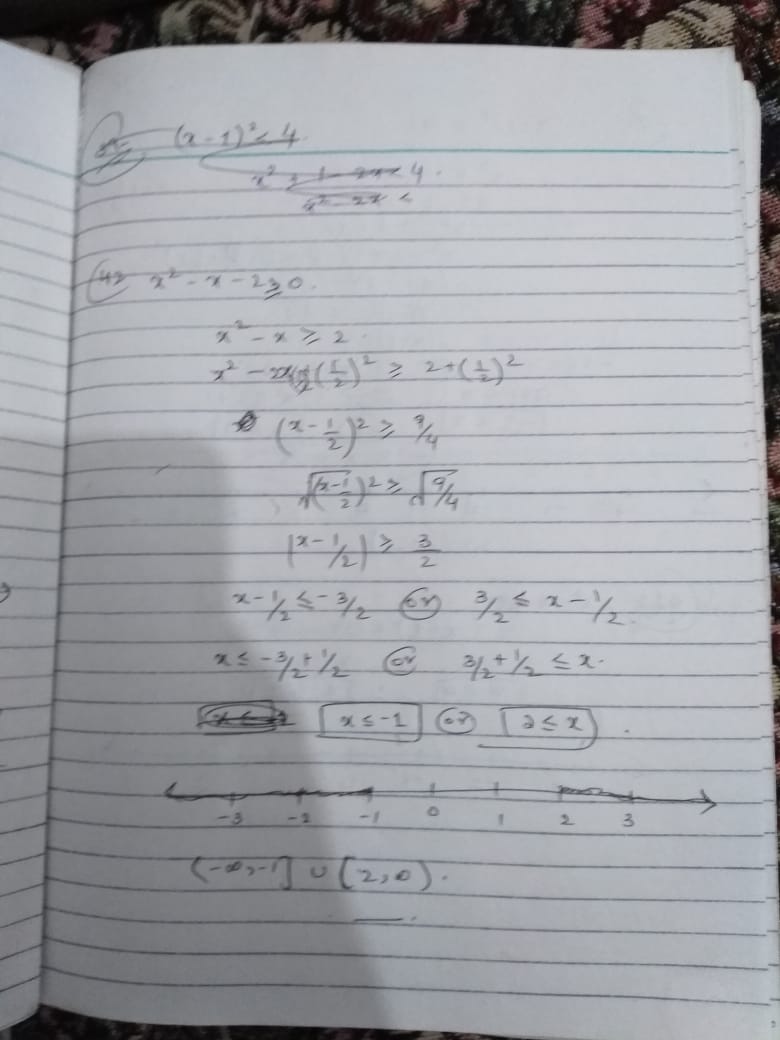 (x - 1)² < 4.
x² + 1 - 2x < 4.
x² - 2x <
42 x² - x - 2 ≥ 0.
x² - x ≥ 2.
(1/2)² ≥ 2 + (1/2)²
(x - 1/2)² ≥ 9/4
√(x - 1/2)² ≥ √9/4
|x - 1/2| ≥ 3/2
x - 1/2 ≤ -3/2 or 3/2 ≤ x - 1/2.
x ≤ -3/2 + 1/2 or 3/2 + 1/2 ≤ x.
x ≤ -1 or 2 ≤ x.
-3 -2 -1 0 1 2 3
(-∞, -1] ∪ [2, ).